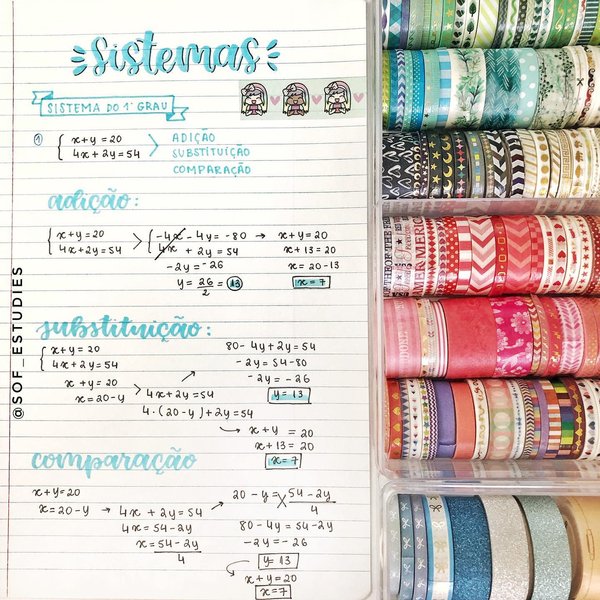 sistemas
SISTEMA DO 1° GRAU
1 { x+y=20 > ADIÇÃO
4x+2y=54 SUBSTITUIÇÃO
COMPARAÇÃO
adição:
{ x+y=20 > { -4x-4y=-80 → x+y=20
4x+2y=54 4x+2y=54 x+13=20
-2y=-26 x=20-13
y=26/2=13 x=7
substituição:
{ x+y=20
4x+2y=54
x+y=20
x=20-y > 4x+2y=54
4·(20-y)+2y=54
80-4y+2y=54
-2y=54-80
-2y=-26
y=13
x+y=20
x+13=20
x=7
comparação
x+y=20
x=20-y → 4x+2y=54
4x=54-2y
x=54-2y/4
20-y=54-2y/4
80-4y=54-2y
-2y=-26
y=13
x+y=20
x=7
@SOF_ESTUDIES